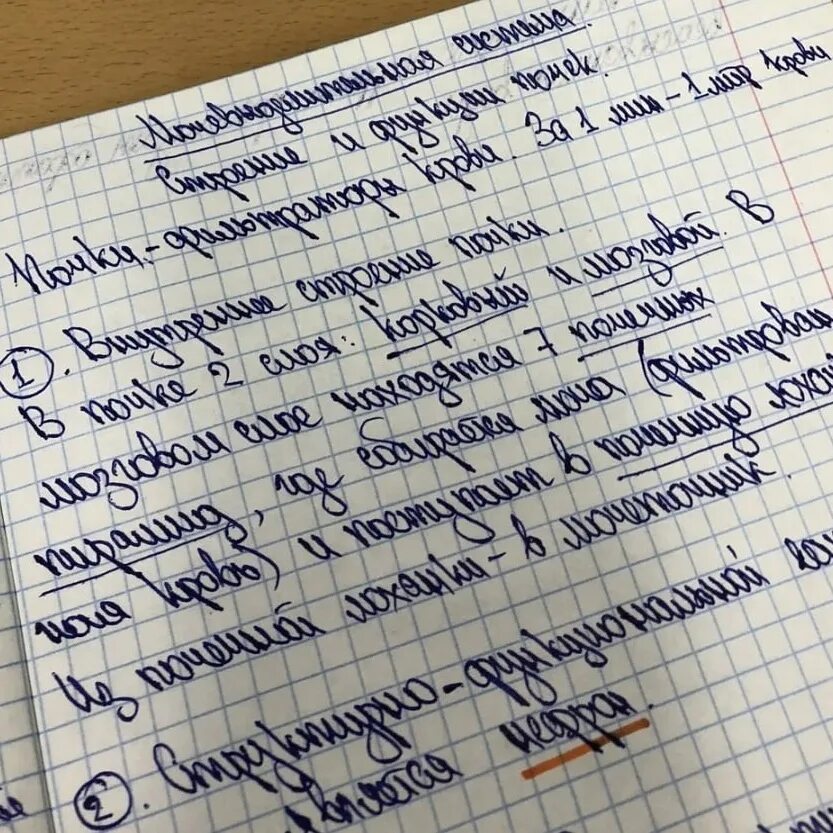 Мочевыделительная система.
Строение и функции почек.
Почки - фильтраторы крови. За 1 мин - 1 литр крови
1. Внутреннее строение почки.
В почке 2 слоя: корковый и мозговой. В
мозговом слое находятся 7 почечных
пирамид, где собирается моча (фильтрован
ная кровь) и поступает в почечную лохан
Из почечной лоханки - в мочеточник.
2. Структурно-функциональной
является нефрон.